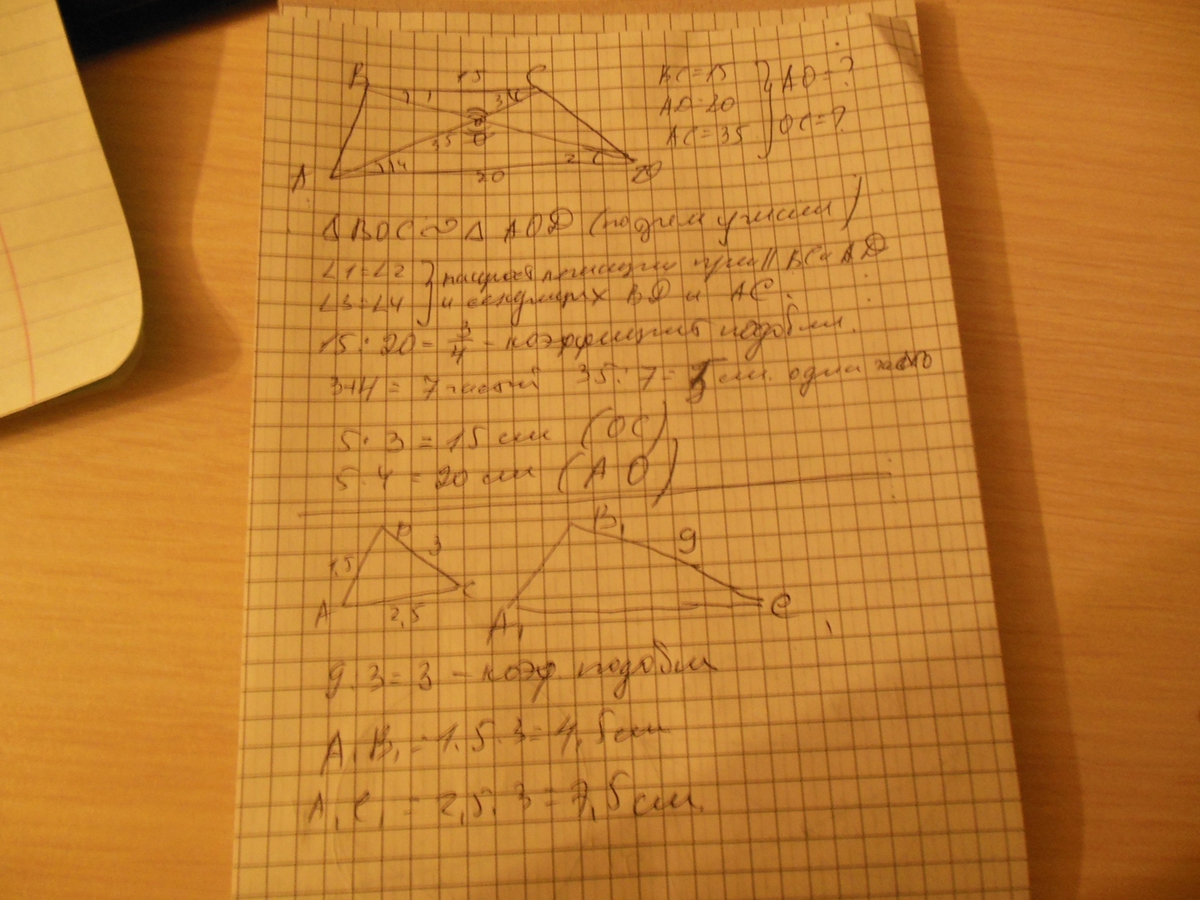 B 15 C
1 3 4
O
35
A 4 20 2 D
BC=15
AD=20
AC=35
AO=?
OC=?
△BOC∾△AOD (по двум углам)
∠1=∠2
∠3=∠4
при || BC и AD
и секущих BD и AC.
15:20=3/4 - коэффициент подобия.
3+4=7 частей 35:7=5 см. одна часть
5·3=15 см (OC)
5·4=20 см (AO)
B B₁
1,5 3 9
A 2,5 C A₁ C₁
9:3=3 - коэф. подобия
A₁B₁=1.5·3=4,5 см
A₁C₁=2,5·3=7,5 см.